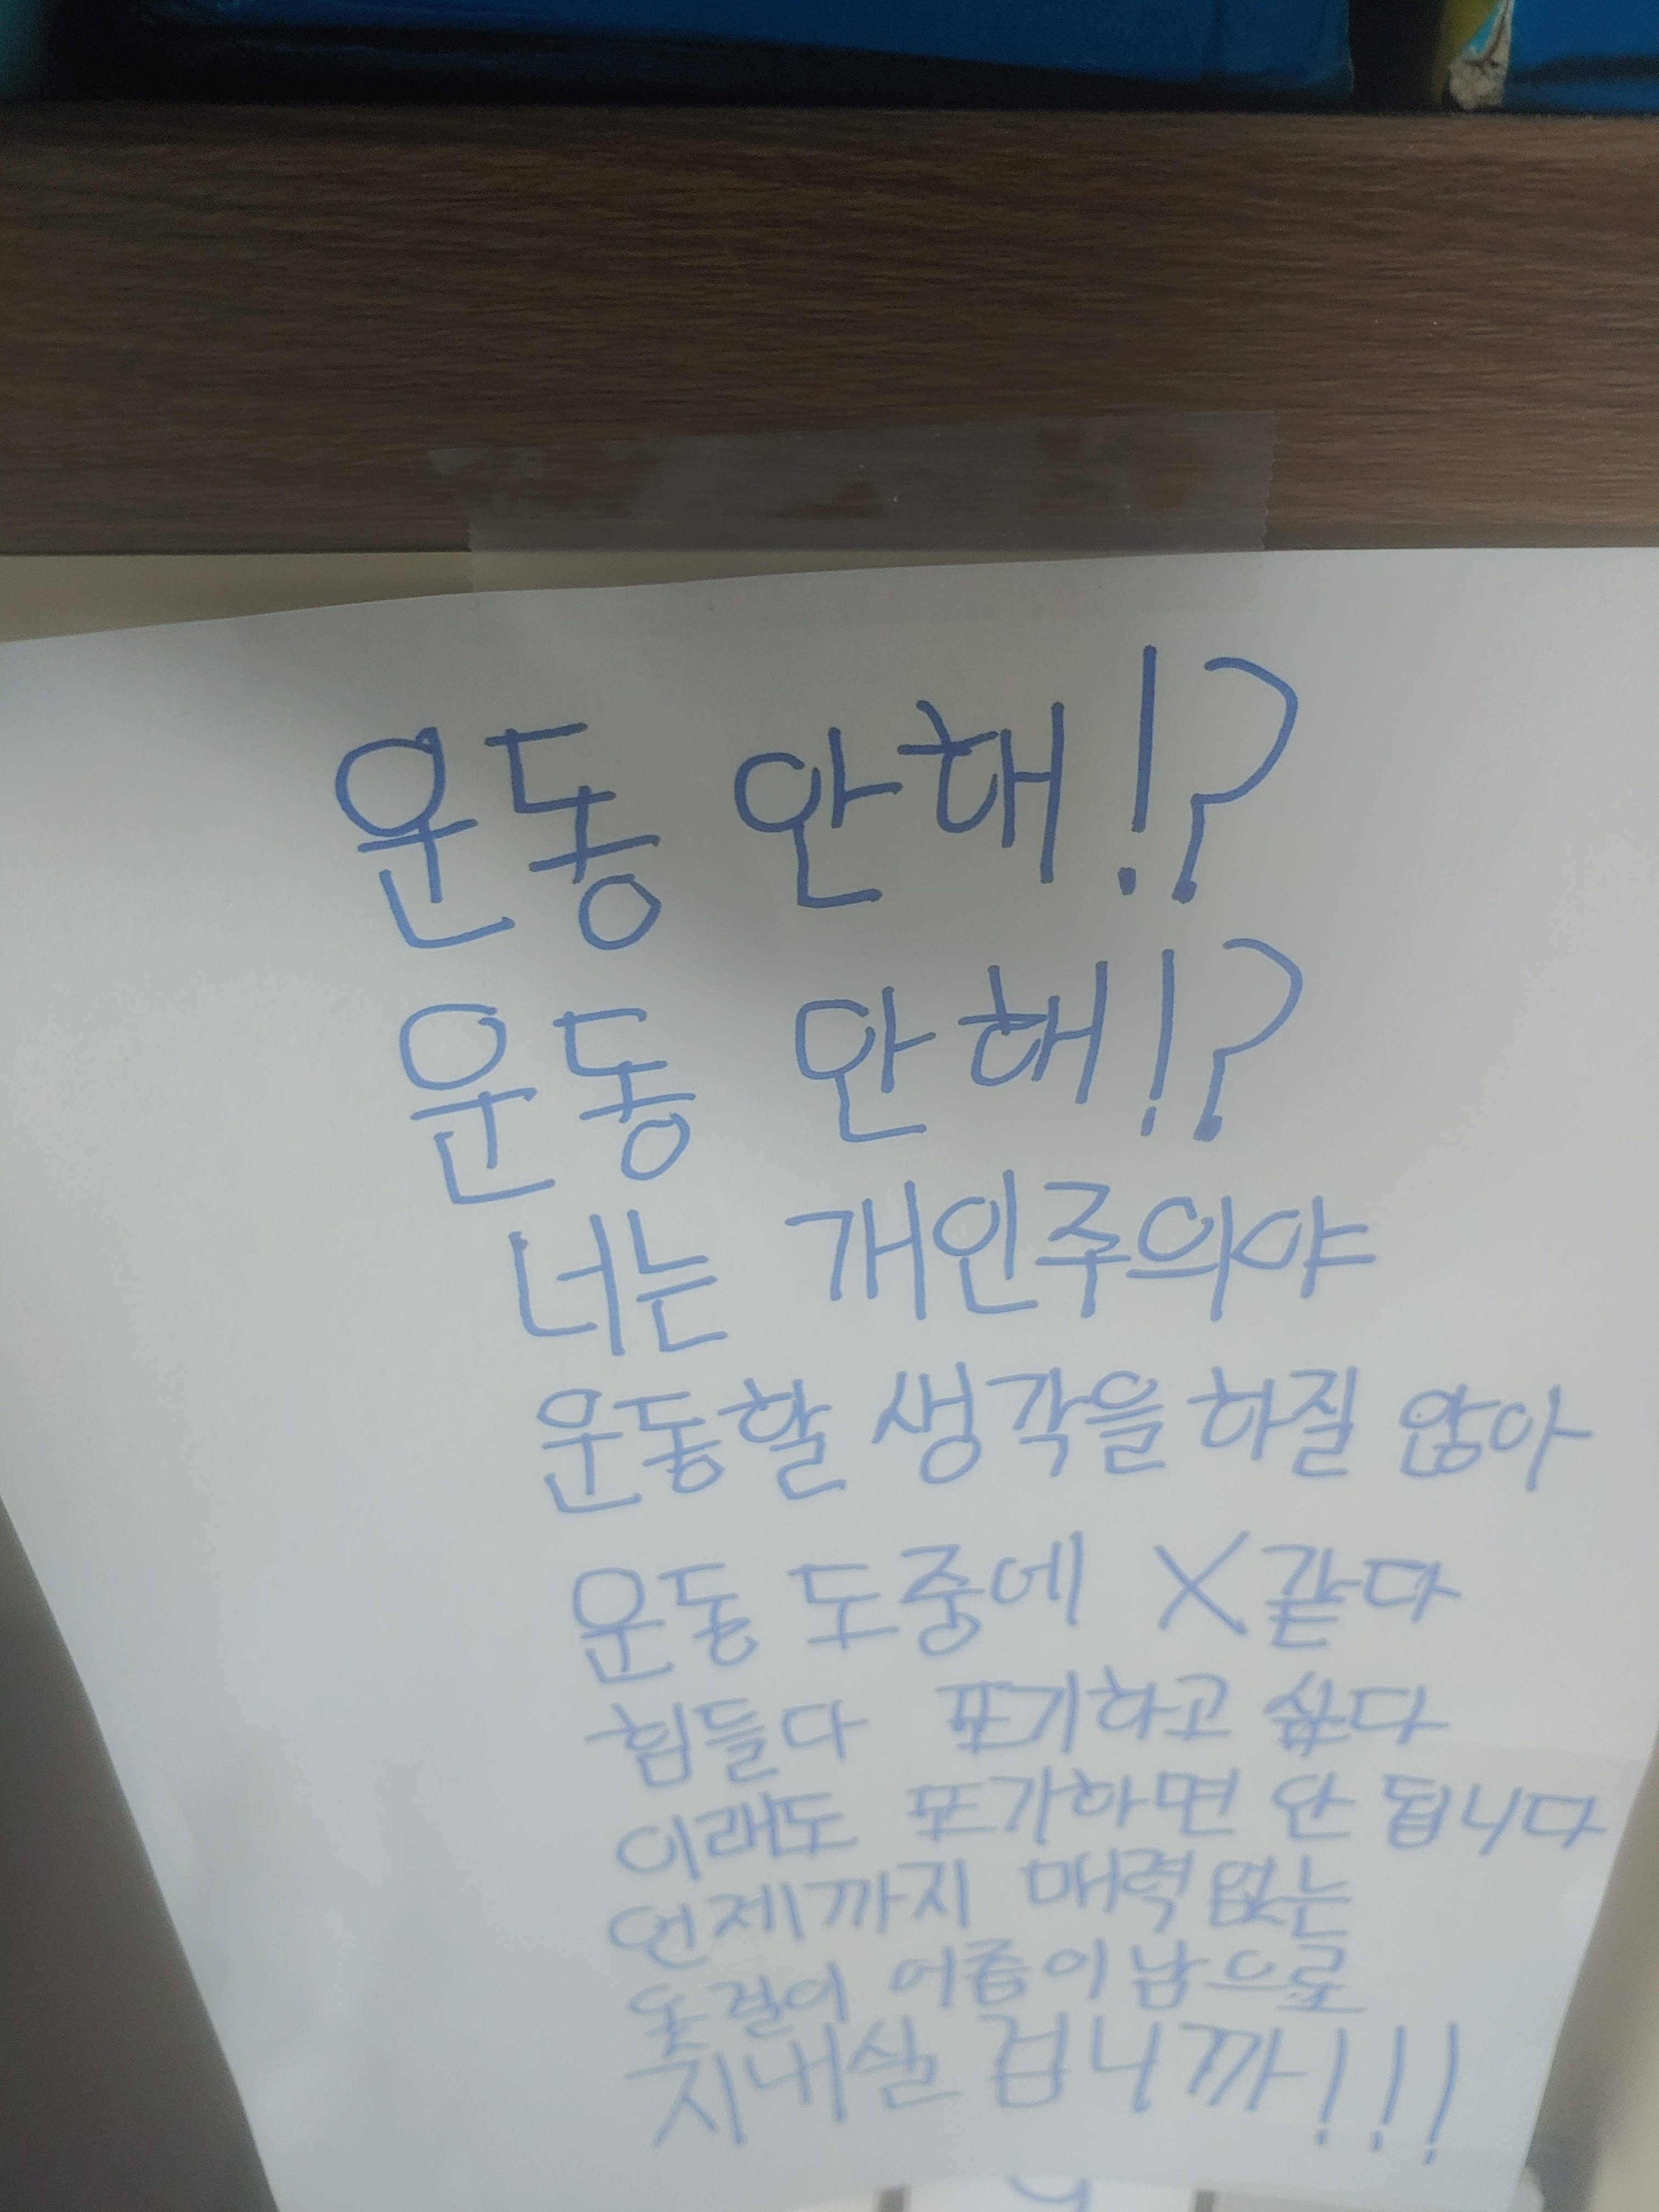 운동 안해!?
운동 안해!?
너는 개인주의야
운동할 생각을 하질 않아
운동 도중에 X같다
힘들다 포기하고 싶다
이래도 포기하면 안 됩니다
언제까지 매력없는
이남으로
지내실 겁니까!!!